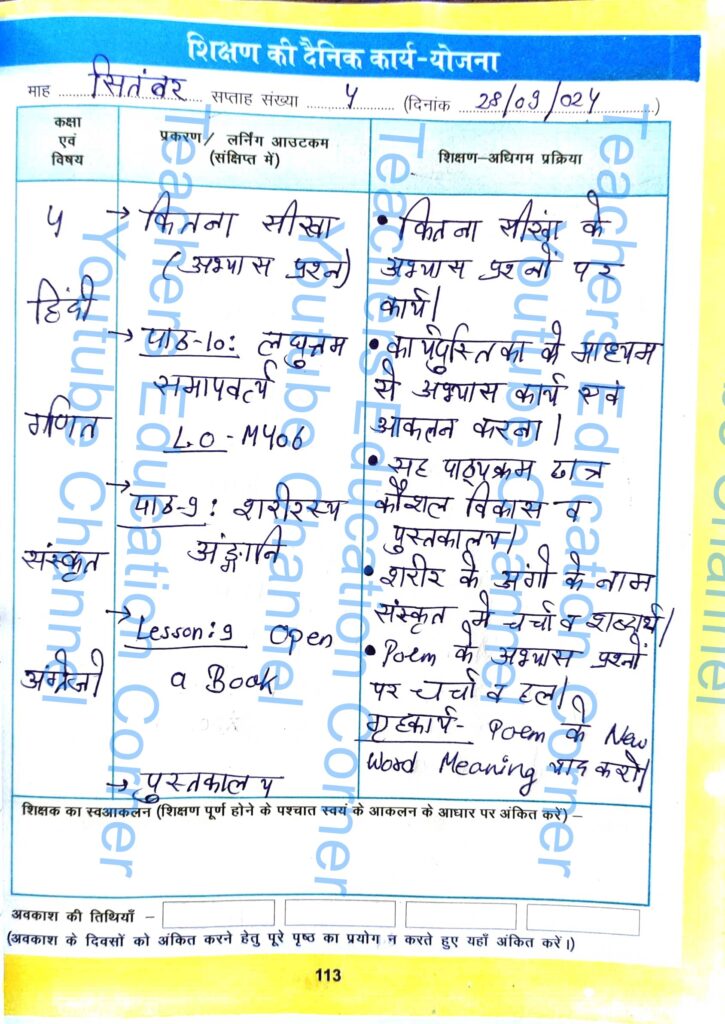 शिक्षण की दैनिक कार्य-योजना
माह सितंबर सप्ताह संख्या ५ (दिनांक 28/09/024)
कक्षा
एवं
विषय
प्रकरण/ लर्निंग आउटकम
(संक्षिप्त में)
शिक्षण-अधिगम प्रक्रिया
५
हिंदी
गणित
संस्कृत
अंग्रेजी
→ कितना सीखा
(अभ्यास प्रश्न)
→ पाठ-10: लघुत्तम
समापवर्त्य
L.O - M406
→ पाठ-9: शरीरस्य
अंङ्गानि
→ Lesson: 9 Open
a Book
→ पुस्तकालय
• कितना सीखा के
अभ्यास प्रश्नों पर
कार्य।
• कार्यपुस्तिका के माध्यम
से अभ्यास कार्य एवं
आकलन करना।
• सह पाठ्यक्रम छात्र
कौशल विकास व
पुस्तकालय।
• शरीर के अंगो के नाम
संस्कृत में चर्चा व शब्दार्थ।
• Poem के अभ्यास प्रश्नों
पर चर्चा व हल।
गृहकार्य- Poem के New
Word Meaning याद करो।
शिक्षक का स्वआकलन (शिक्षण पूर्ण होने के पश्चात स्वयं के आकलन के आधार पर अंकित करें) –
अवकाश की तिथियाँ –
(अवकाश के दिवसों को अंकित करने हेतु पूरे पृष्ठ का प्रयोग न करते हुए यहाँ अंकित करें।)
113
Teachers Education Corner
Youtube Channel
Teachers Education Corner
Youtube Channel
Teachers Education Corner
Youtube Channel